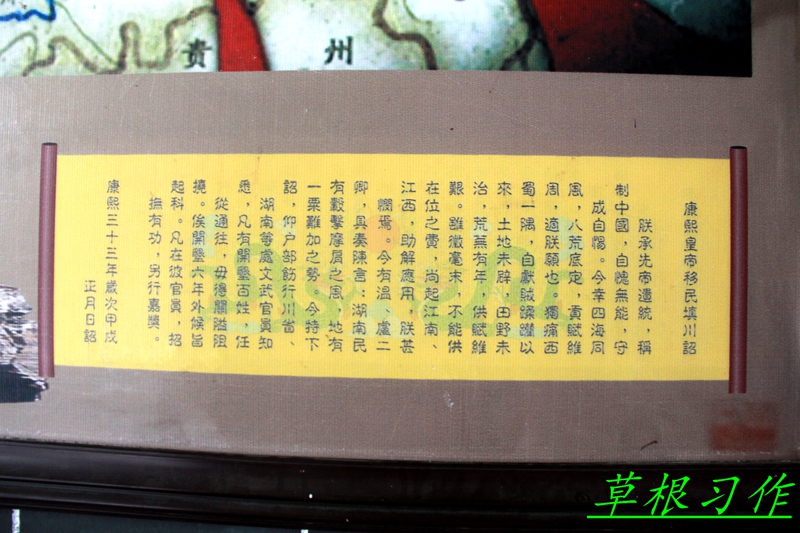 贵州
康熙皇帝移民填川詔
朕承先帝遺統，稱
制中國，自愧無能，守
成自惕。今幸四海同
風，八荒底定，貢賦維
周，適朕願也。獨痛西
蜀一隅，自獻賊蹂躪以
來，土地未辟，田野未
治，荒蕪有年，供賦維
艱。雖徵毫末，不能供
在位之費，尚起江南、
江西，助解應用，朕甚
憫焉。今有溫、盧二
卿，具奏陳言：湖南民
有轂擊摩肩之風，地有
一粟難加之勢。今特下
詔，仰户部飭行川省、
湖南等處文武官員知
悉，凡有開墾百姓，任
從通往，毋得關隘阻
撓。俟開墾六年外候旨
起科。凡在彼官員，招
撫有功，另行嘉獎。
康熙三十三年歲次甲戌
正月日詔
草根习作